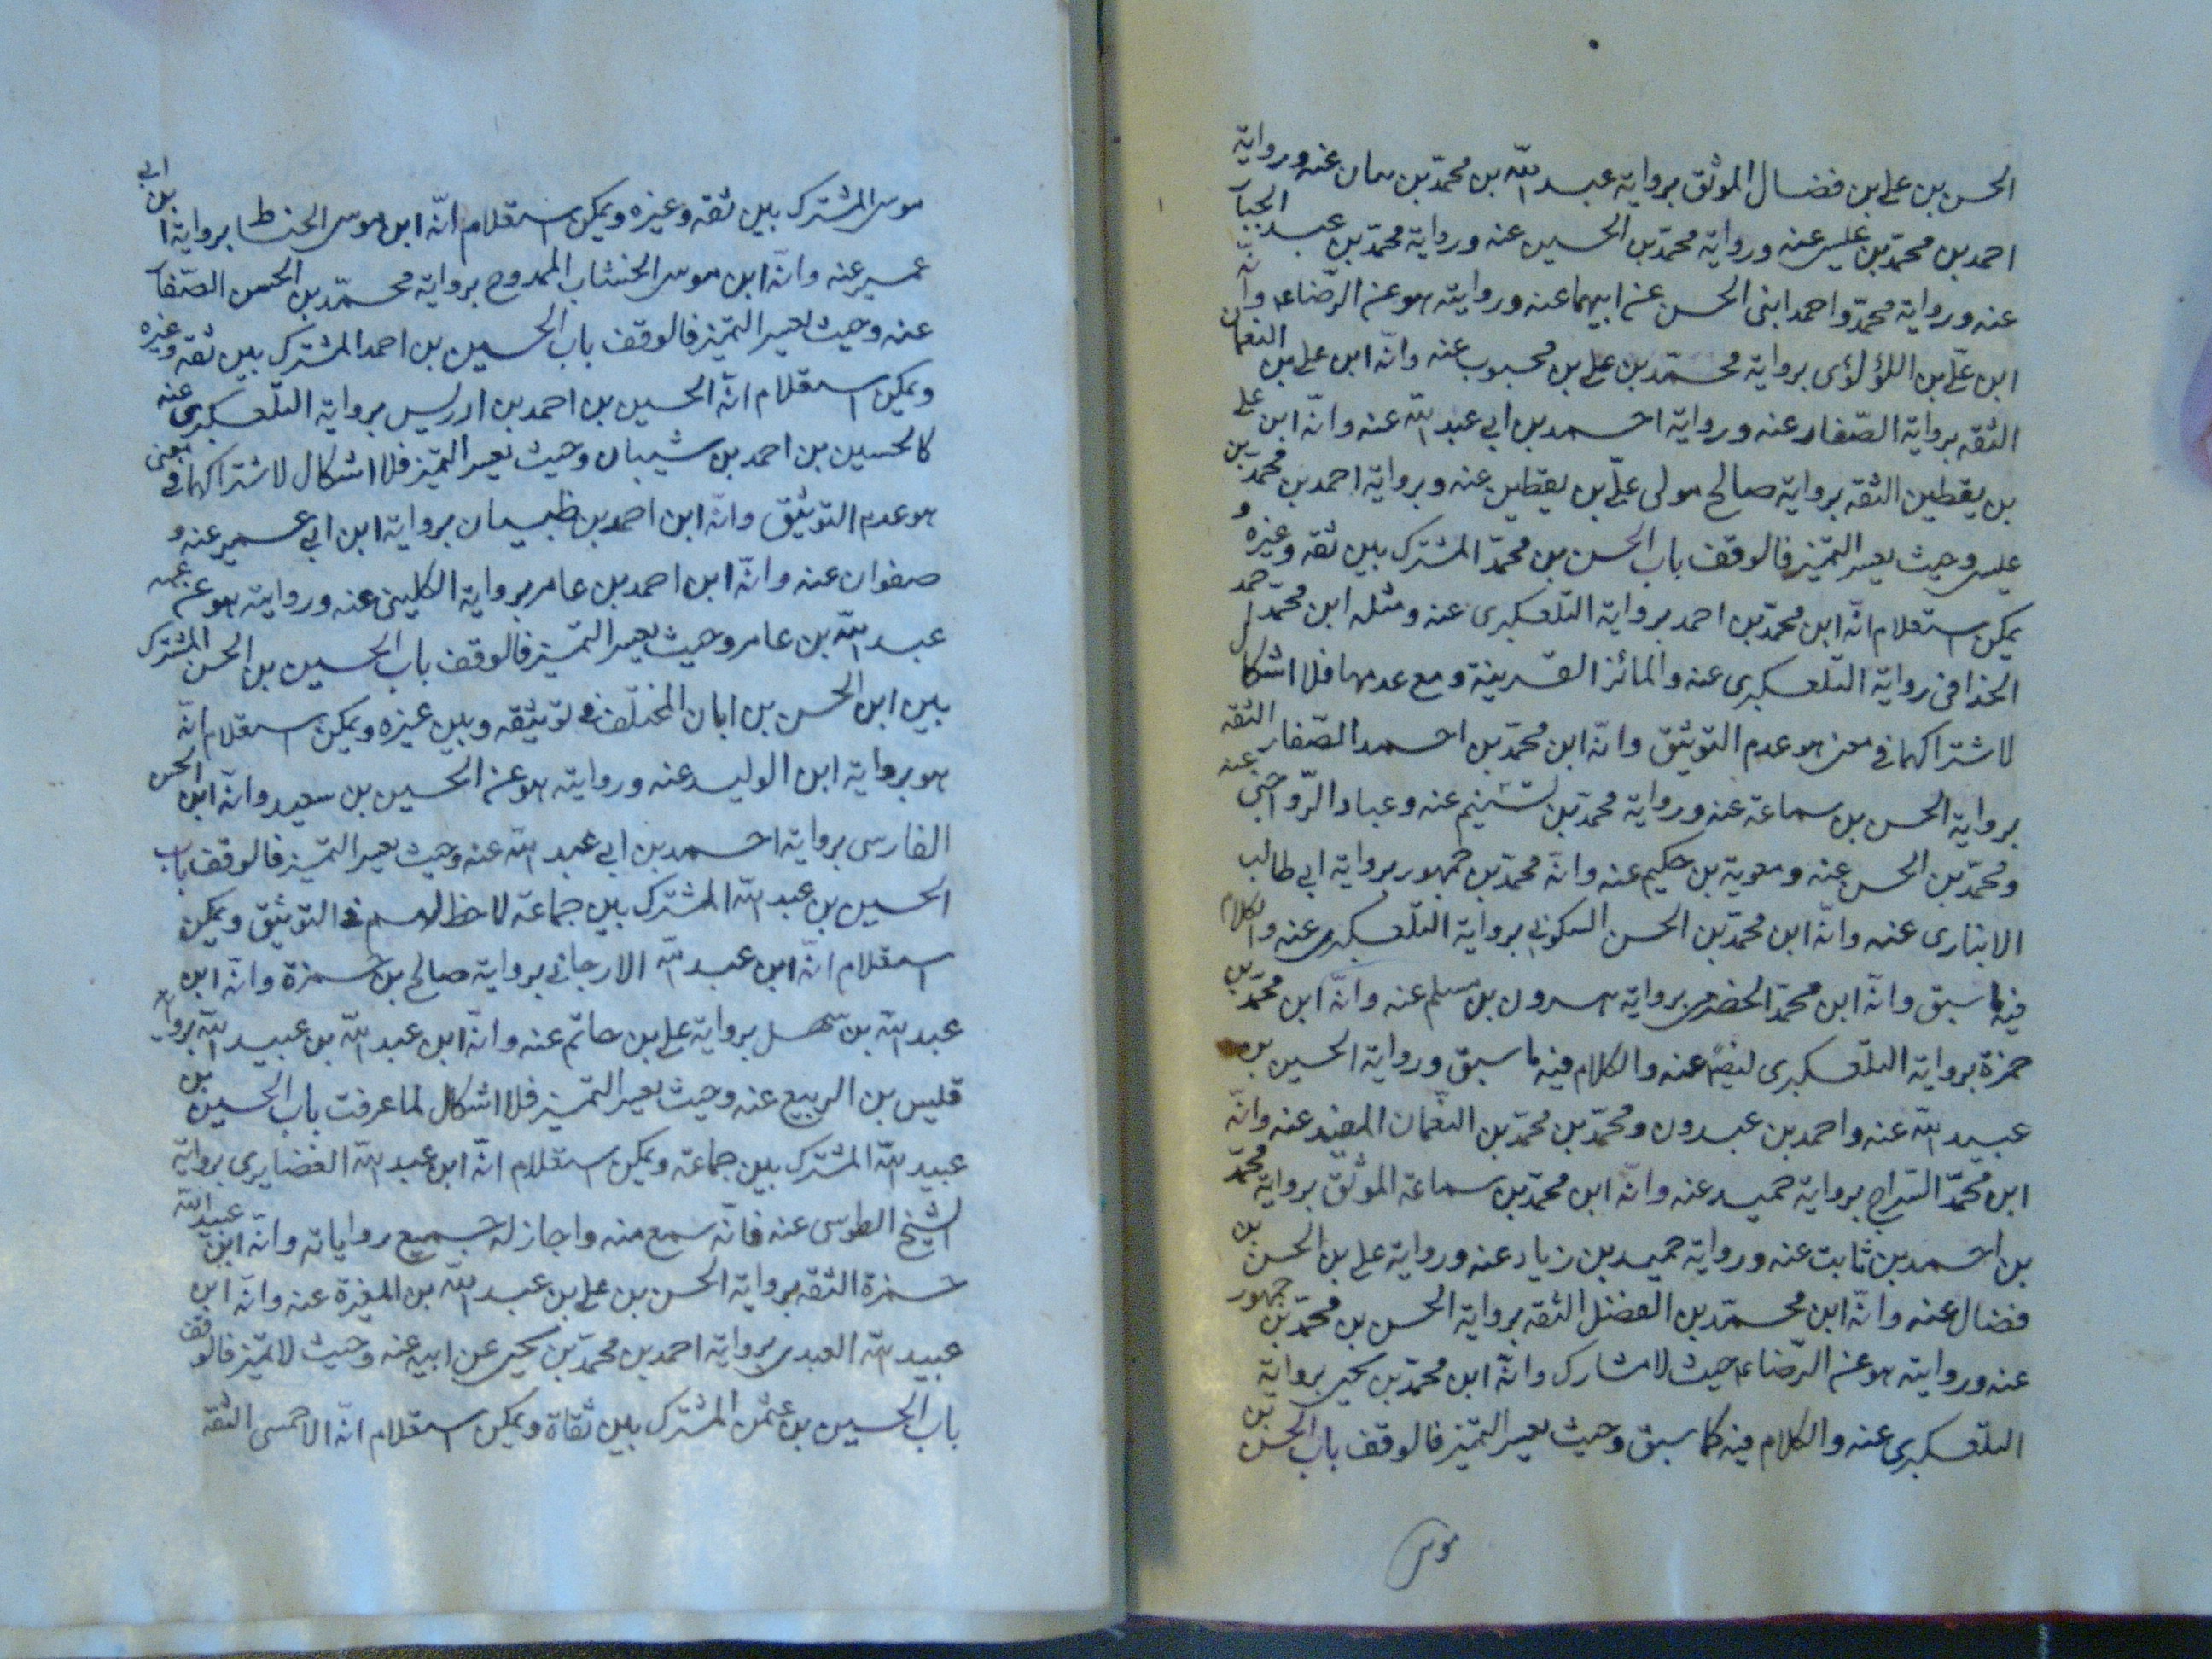 الحسن بن علی بن فضال الموثق بروایة عبد الله بن محمّد بن بنان عنه وروایة
احمد بن محمّد بن عیسی عنه وروایة محمّد بن الحسین عنه وروایة محمّد بن عبد الجبار
عنه وروایة محمّد واحمد ابنی الحسن عن ابیهما عنه وروایته هو عن الرّضاء وانّه
ابن علیّ بن اللؤلؤی بروایة محمّد بن علی بن محبوب عنه وانّه ابن علی بن النعمان
الثقه بروایة الصّفار عنه وروایة احمد بن ابی عبد الله عنه وانّه ابن علی
بن یقطین الثقه بروایة صالح مولی علیّ بن یقطین عنه وبروایة احمد بن محمّد بن
عیسی وحیث یعسر التمّیز فالوقف باب الحسن بن محمّد المشترک بین ثقه وغیره و
یمکن استعلام انّه ابن محمّد بن احمد بروایة التلّعکبری عنه ومثله ابن محمّد بن احمد
الحذا فی روایة التلّعکبری عنه والمائز القرینة ومع عدمها فلا اشکال
لاشتراکهما فی معنی هو عدم التوثیق وانّه ابن محمّد بن احمد الصّفار الثقه
بروایة الحسن بن سماعة عنه وروایة محمّد بن تسنیم عنه وعباد الرّواجنی عنه
ومحمّد بن الحسن عنه ومعویة بن حکیم عنه وانّه محمّد بن جمهور بروایة ابی طالب
الانباری عنه وانّه ابن محمّد بن الحسن السکونی بروایة التلّعکبری عنه والکلام
فیه ما سبق وانّه ابن محمّد الحضرمی بروایة هرون بن مسلم عنه وانّه ابن محمّد بن
حمزة بروایة التلّعکبری ایضًا عنه والکلام فیه ما سبق وروایة الحسین بن
عبید الله عنه واحمد بن عبدون ومحمّد بن محمّد بن النّعمان المفید عنه وانّه
ابن محمّد السّراج بروایة حمید عنه وانّه ابن محمّد بن سماعة الموثّق بروایة محمّد
بن احمد بن ثابت عنه وروایة حمید بن زیاد عنه وروایة علی بن الحسن بن
فضال عنه وانّه ابن محمّد بن الفضل الثقه بروایة الحسن بن محمّد بن جمهور
عنه وروایته هو عن الرّضاء حیث لا مشارک وانّه ابن محمّد بن یحیی بروایة
التلّعکبری عنه والکلام فیه کما سبق وحیث یعسر التمّیز فالوقف باب الحسن بن
موسی
موسی المشترک بین ثقه وغیره ویمکن استعلام انّه ابن موسی الحناط بروایة ابن ابی
عمیر عنه وانّه ابن موسی الخشاب الممدوح بروایة محمّد بن الحسن الصّفار
عنه وحیث یعسر التمّیز فالوقف باب الحسین بن احمد المشترک بین ثقه وغیره
ویمکن استعلام انّه الحسین بن احمد بن ادریس بروایة التلّعکبری عنه
کالحسین بن احمد بن شیبان وحیث یعسر التمّیز فلا اشکال لاشتراکهما فی معنی
هو عدم التوثیق وانّه ابن احمد بن ظبیان بروایة ابن ابی عمیر عنه و
صفوان عنه وانّه ابن احمد بن عامر بروایة الکلینی عنه وروایته هو عن عمه
عبد الله بن عامر وحیث یعسر التمّیز فالوقف باب الحسین بن الحسن المشترک
بین ابن الحسن بن ابان المختلف فی توثیقه وبین غیره ویمکن استعلام انّه
هو بروایة ابن الولید عنه وروایته هو عن الحسین بن سعید وانّه ابن الحسن
الفارسی بروایة احمد بن ابی عبد الله عنه وحیث یعسر التمّیز فالوقف باب
الحسین بن عبد الله المشترک بین جماعة لا حظ لهم فی التوثیق ویمکن
استعلام انّه ابن عبد الله الارجانی بروایة صالح بن حمزة وانّه ابن
عبد الله بن سهل بروایة علی بن حاتم عنه وانّه ابن عبد الله بن عبید الله بروایة
قیس بن الربیع عنه وحیث یعسر التمّیز فلا اشکال لما عرفت باب الحسین بن
عبید الله المشترک بین جماعة ویمکن استعلام انّه ابن عبد الله الغضایری بروایة
الشیخ الطوسی عنه فانّه سمع منه واجاز له جمیع روایاته وانّه ابن عبید الله
حمزة الثقه بروایة الحسن بن علی بن عبد الله بن المغیرة عنه وانّه ابن
عبید الله العبدی بروایة احمد بن محمّد بن یحیی عن ابیه عنه وحیث لا تمیّز فالوقف
باب الحسین بن عثمن المشترک بین ثقاة ویمکن استعلام انّه الاحمسی الثقه